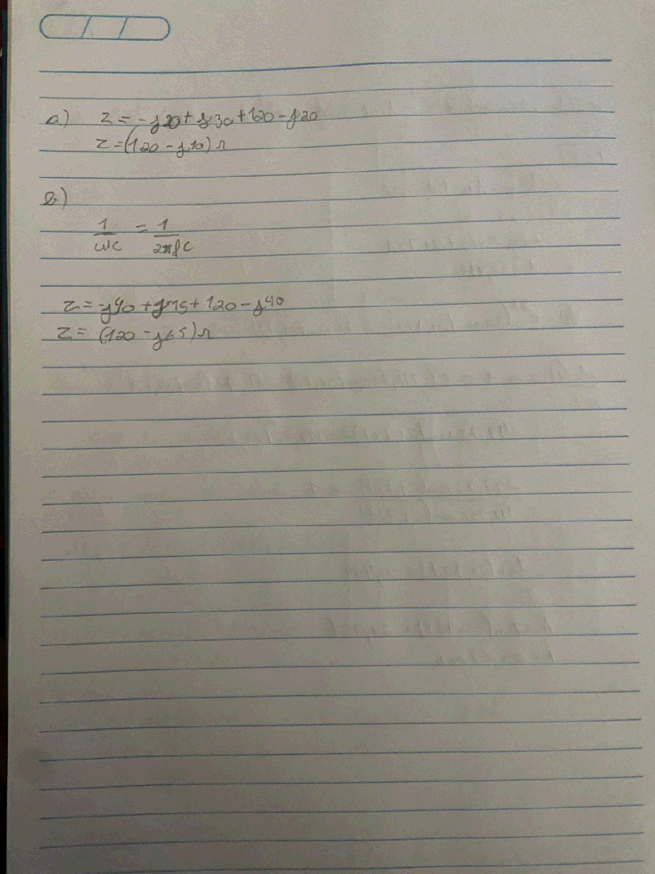 a) Z = -j20 + j30 + 120 - j20
Z = (120 - j10) Ω
b)
1/ωC = 1/2πfC
Z = -j40 + j15 + 120 - j40
Z = (120 - j65) Ω